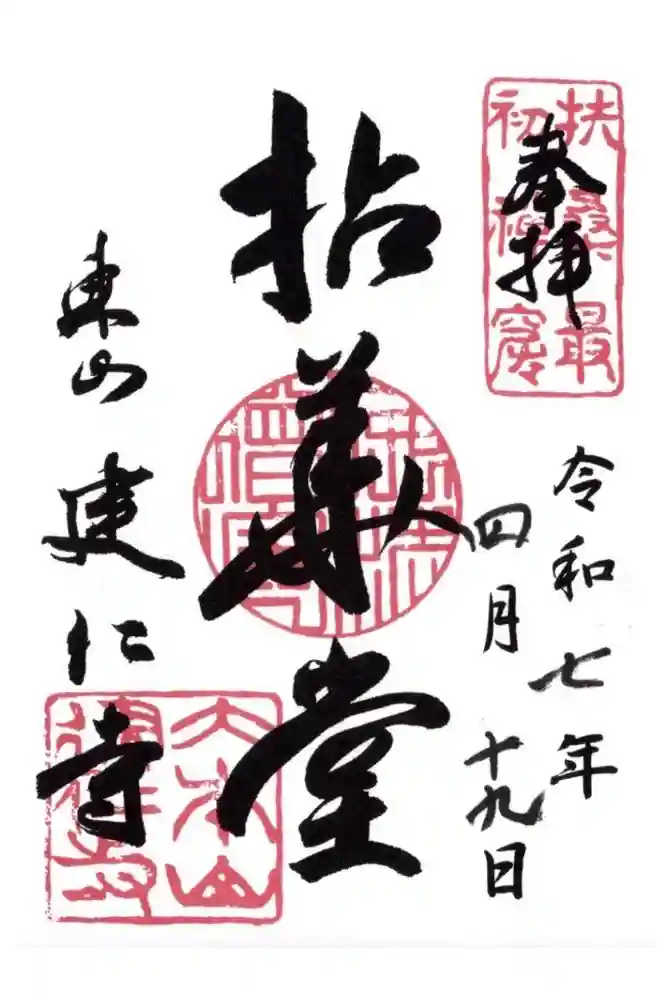 奉拝
扶桑最
初禅窟
令和七年
四月
十九日
拈華堂
東山
建仁寺
大本山
建仁寺